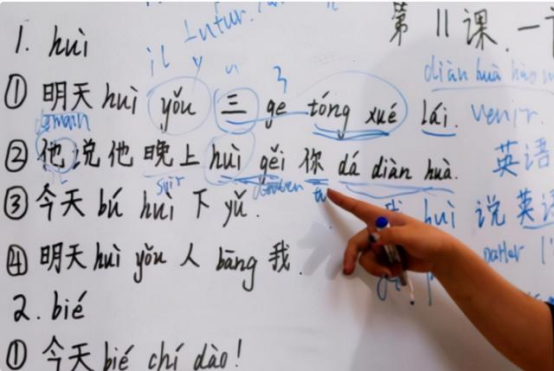 第 11 课. 一
1. huì
futur.
il y a
3
diàn huà hào
① 明天 huì yǒu 三 ge tóng xué lái.
venir.
demain
② 他说他晚上 huì gěi 你 dá diàn huà.
英语
il
soir
③ 今天 bú huì 下 yǔ.
huì 说英语
④ 明天 huì yǒu 人 bāng 我.
parler l'
2. bié
① 今天 bié chí dào!